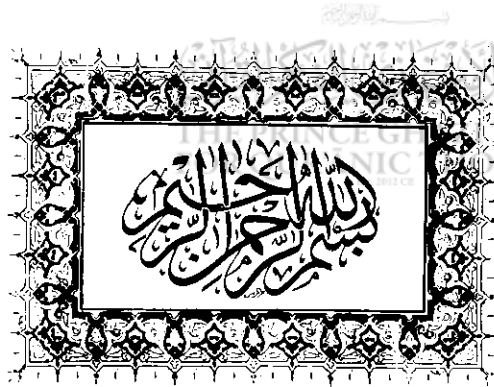 بسم الله الرحمن الرحيم
THE PRINCE GH
NIC T
2012 CE